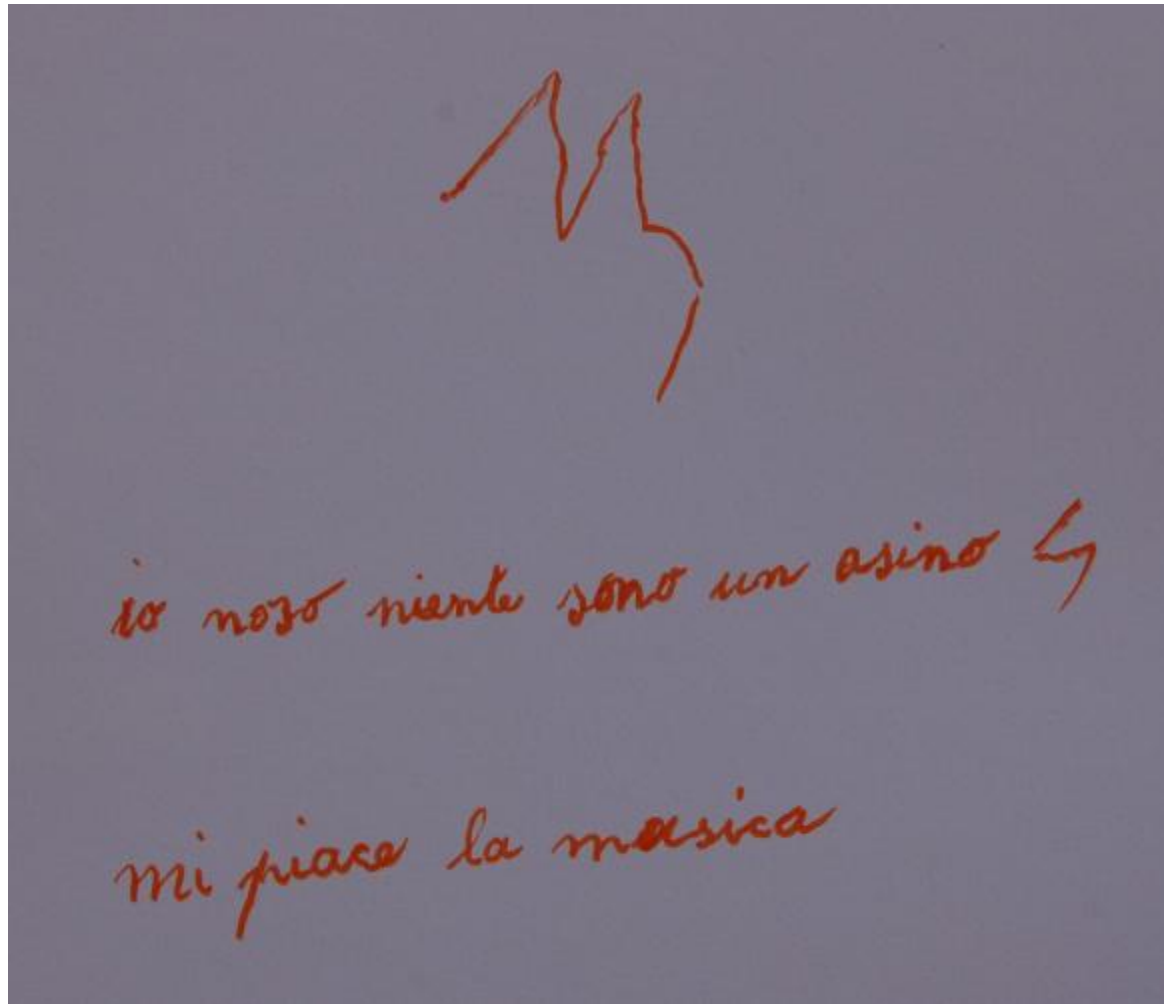 io noso niente sono un asino
mi piace la masica